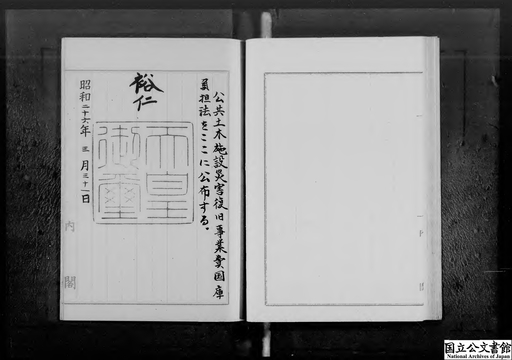 公共土木施設災害復旧事業費国庫
負担法をここに公布する。
裕仁
天皇
御璽
昭和二十六年三月三十一日
内閣
国立公文書館
National Archives of Japan